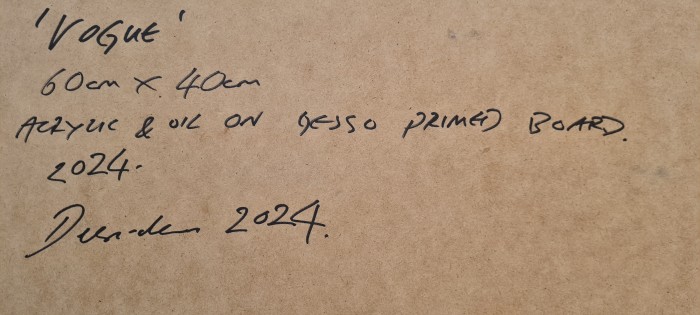 'VOGUE'
60cm x 40cm
ACRYLIC & OIL ON GESSO PRIMED BOARD.
2024.
2024.